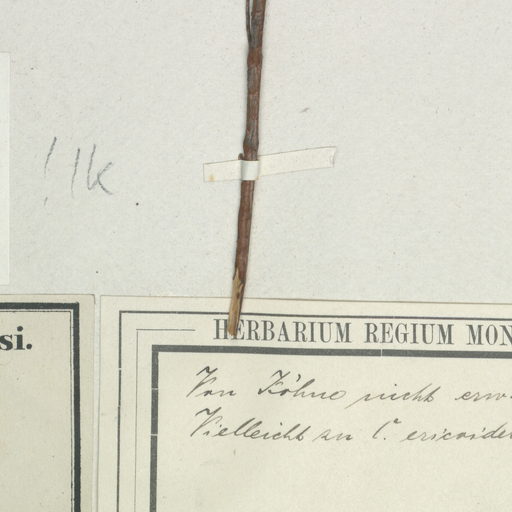 ! lk
si.
HERBARIUM REGIUM MON
Von Köhne nicht erw
Vielleicht zu C. ericoide